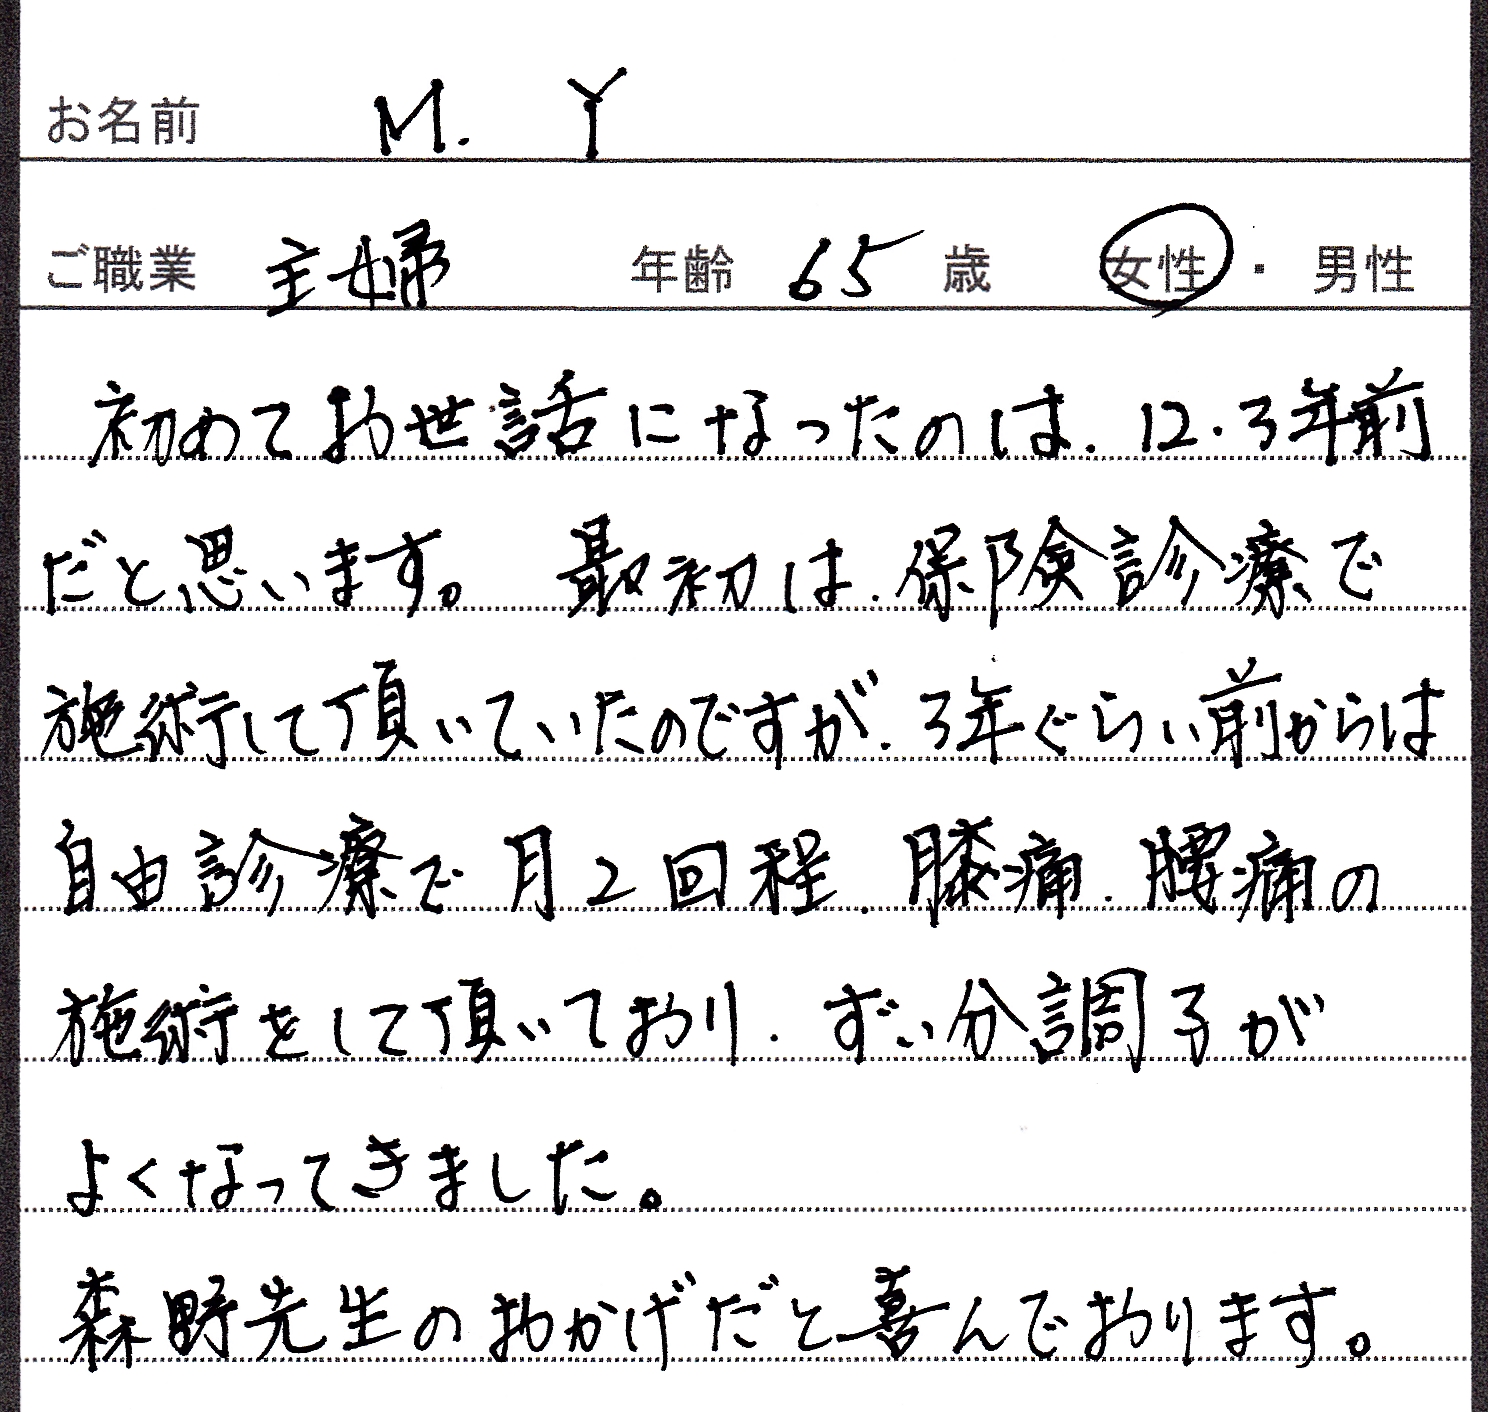 お名前 M. Y
ご職業 主婦 年齢 65 歳 女性 ・ 男性
初めてお世話になったのは、12.3年前
だと思います。 最初は、保険診療で
施術して頂いていたのですが、3年ぐらい前からは
自由診療で月2回程、膝痛、腰痛の
施術をして頂いており、ずい分調子が
よくなってきました。
森野先生のおかげだと喜んでおります。